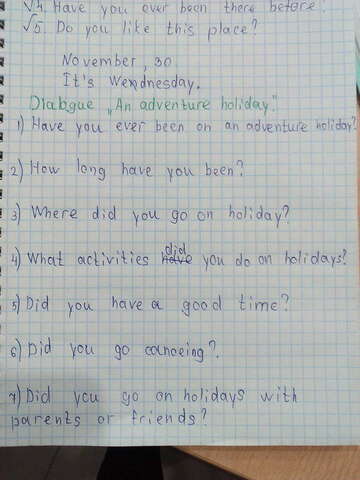 √4. Have you ever been there before?
√5. Do you like this place?
November, 30
It's Wendnesday.
Dialogue „An adventure holiday".
1) Have you ever been on an adventure holiday?
2) How long have you been?
3) Where did you go on holiday?
did
4) What activities have you do on holidays?
5) Did you have a good time?
6) Did you go canoeing?.
7) Did you go on holidays with
parents or friends?